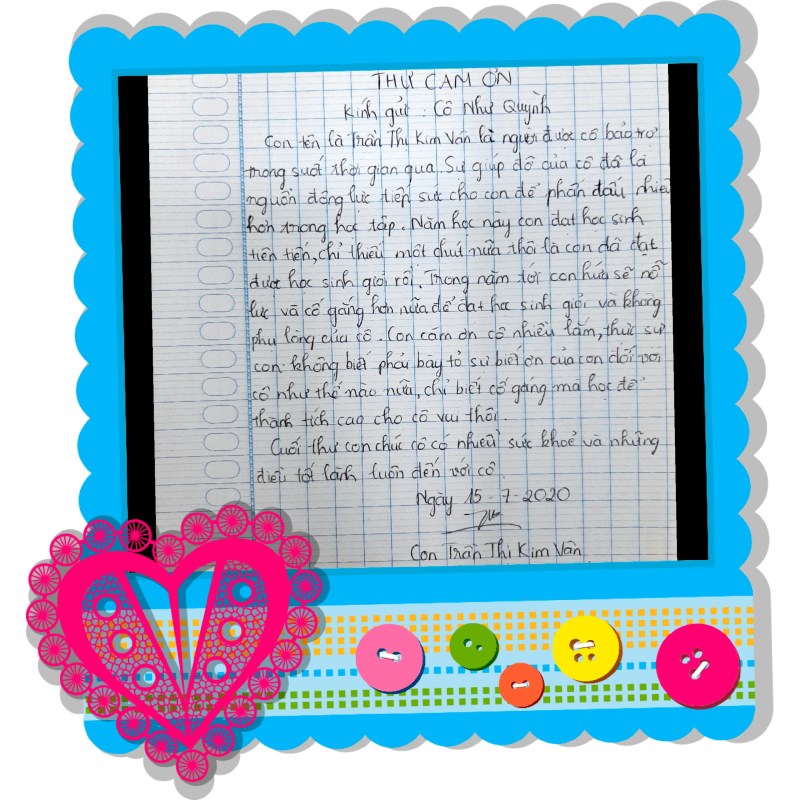 THƯ CẢM ƠN
Kính gửi : Cô Như Quỳnh
Con tên là Trần Thị Kim Vân là người được cô bảo trợ
trong suốt thời gian qua. Sự giúp đỡ của cô đó là
nguồn động lực tiếp sức cho con để phấn đấu nhiều
hơn trong học tập. Năm học này con đạt học sinh
tiên tiến, chỉ thiếu một chút nữa thôi là con đã đạt
được học sinh giỏi rồi. Trong năm tới con hứa sẽ nỗ
lực và cố gắng hơn nữa để đạt học sinh giỏi và không
phụ lòng của cô. Con cám ơn cô nhiều lắm, thực sự
con không biết phải bày tỏ sự biết ơn của con đối với
cô như thế nào nữa, chỉ biết cố gắng mà học để
thành tích cao cho cô vui thôi.
Cuối thư con chúc cô có nhiều sức khoẻ và những
điều tốt lành luôn đến với cô.
Ngày 15-7-2020
Con Trần Thị Kim Vân